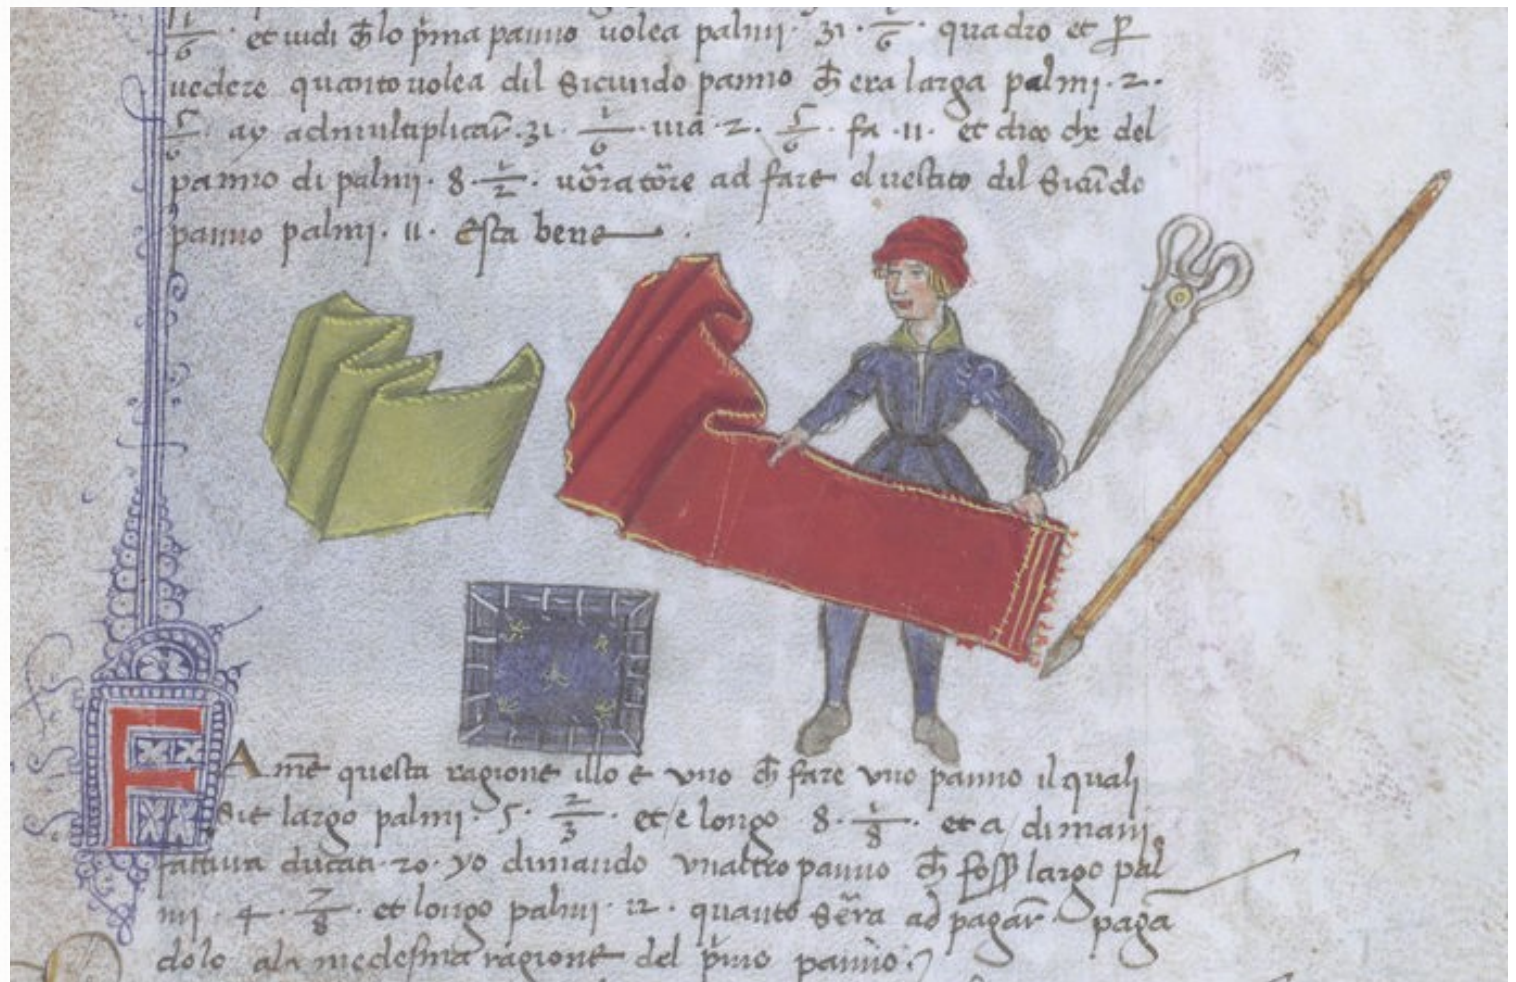 1/6 · et uidi ch̄ lo p̄ma panno uolea palmi · 31 · 1/6 · quadro et ꝑ
uedere quanto uolea dil sicundo panno ch̄ era larga palmi · 2 ·
5/6 ay admultiplicar̄ · 31 · 1/6 · uia · 2 · 5/6 · fa · 11 · et dico che del
panno di palmi · 8 · 1/2 · ad fare el uestito dil
panno palmi · 11 · esta bene
FAme questa ragione illo e uno ch̄ fare uno panno il quali
sie largo palmi · 5 · 2/3 · et e longo 8 · 1/8 · et a di mani
fattura ducati · 20 · yo dimando unaltro panno ch̄ largo pal
mi · 4 · 7/8 · et longo palmi · 12 · quanto ad pagar̄ paga
dolo ala medesma ragione del p̄mo panno